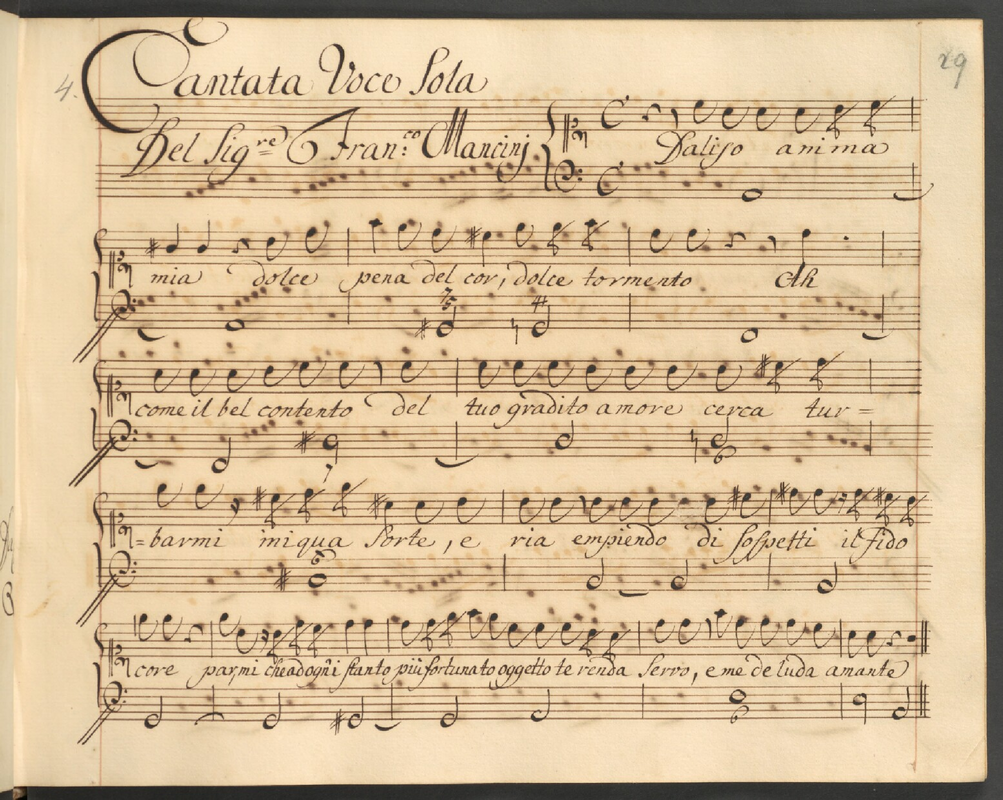 29
4.
Cantata Voce Sola
Del Sig.re Fran:co Mancinj
Daliso anima
mia dolce pena del cor, dolce tormento Ah
7 5 4
come il bel contento del tuo gradito amore cerca tur=
7 6
=barmi iniqua sorte, e ria empiendo di sospetti il fido
6
core parmi che ad ogn'istanto più fortunato oggetto te renda servo, e me deluda amante
6